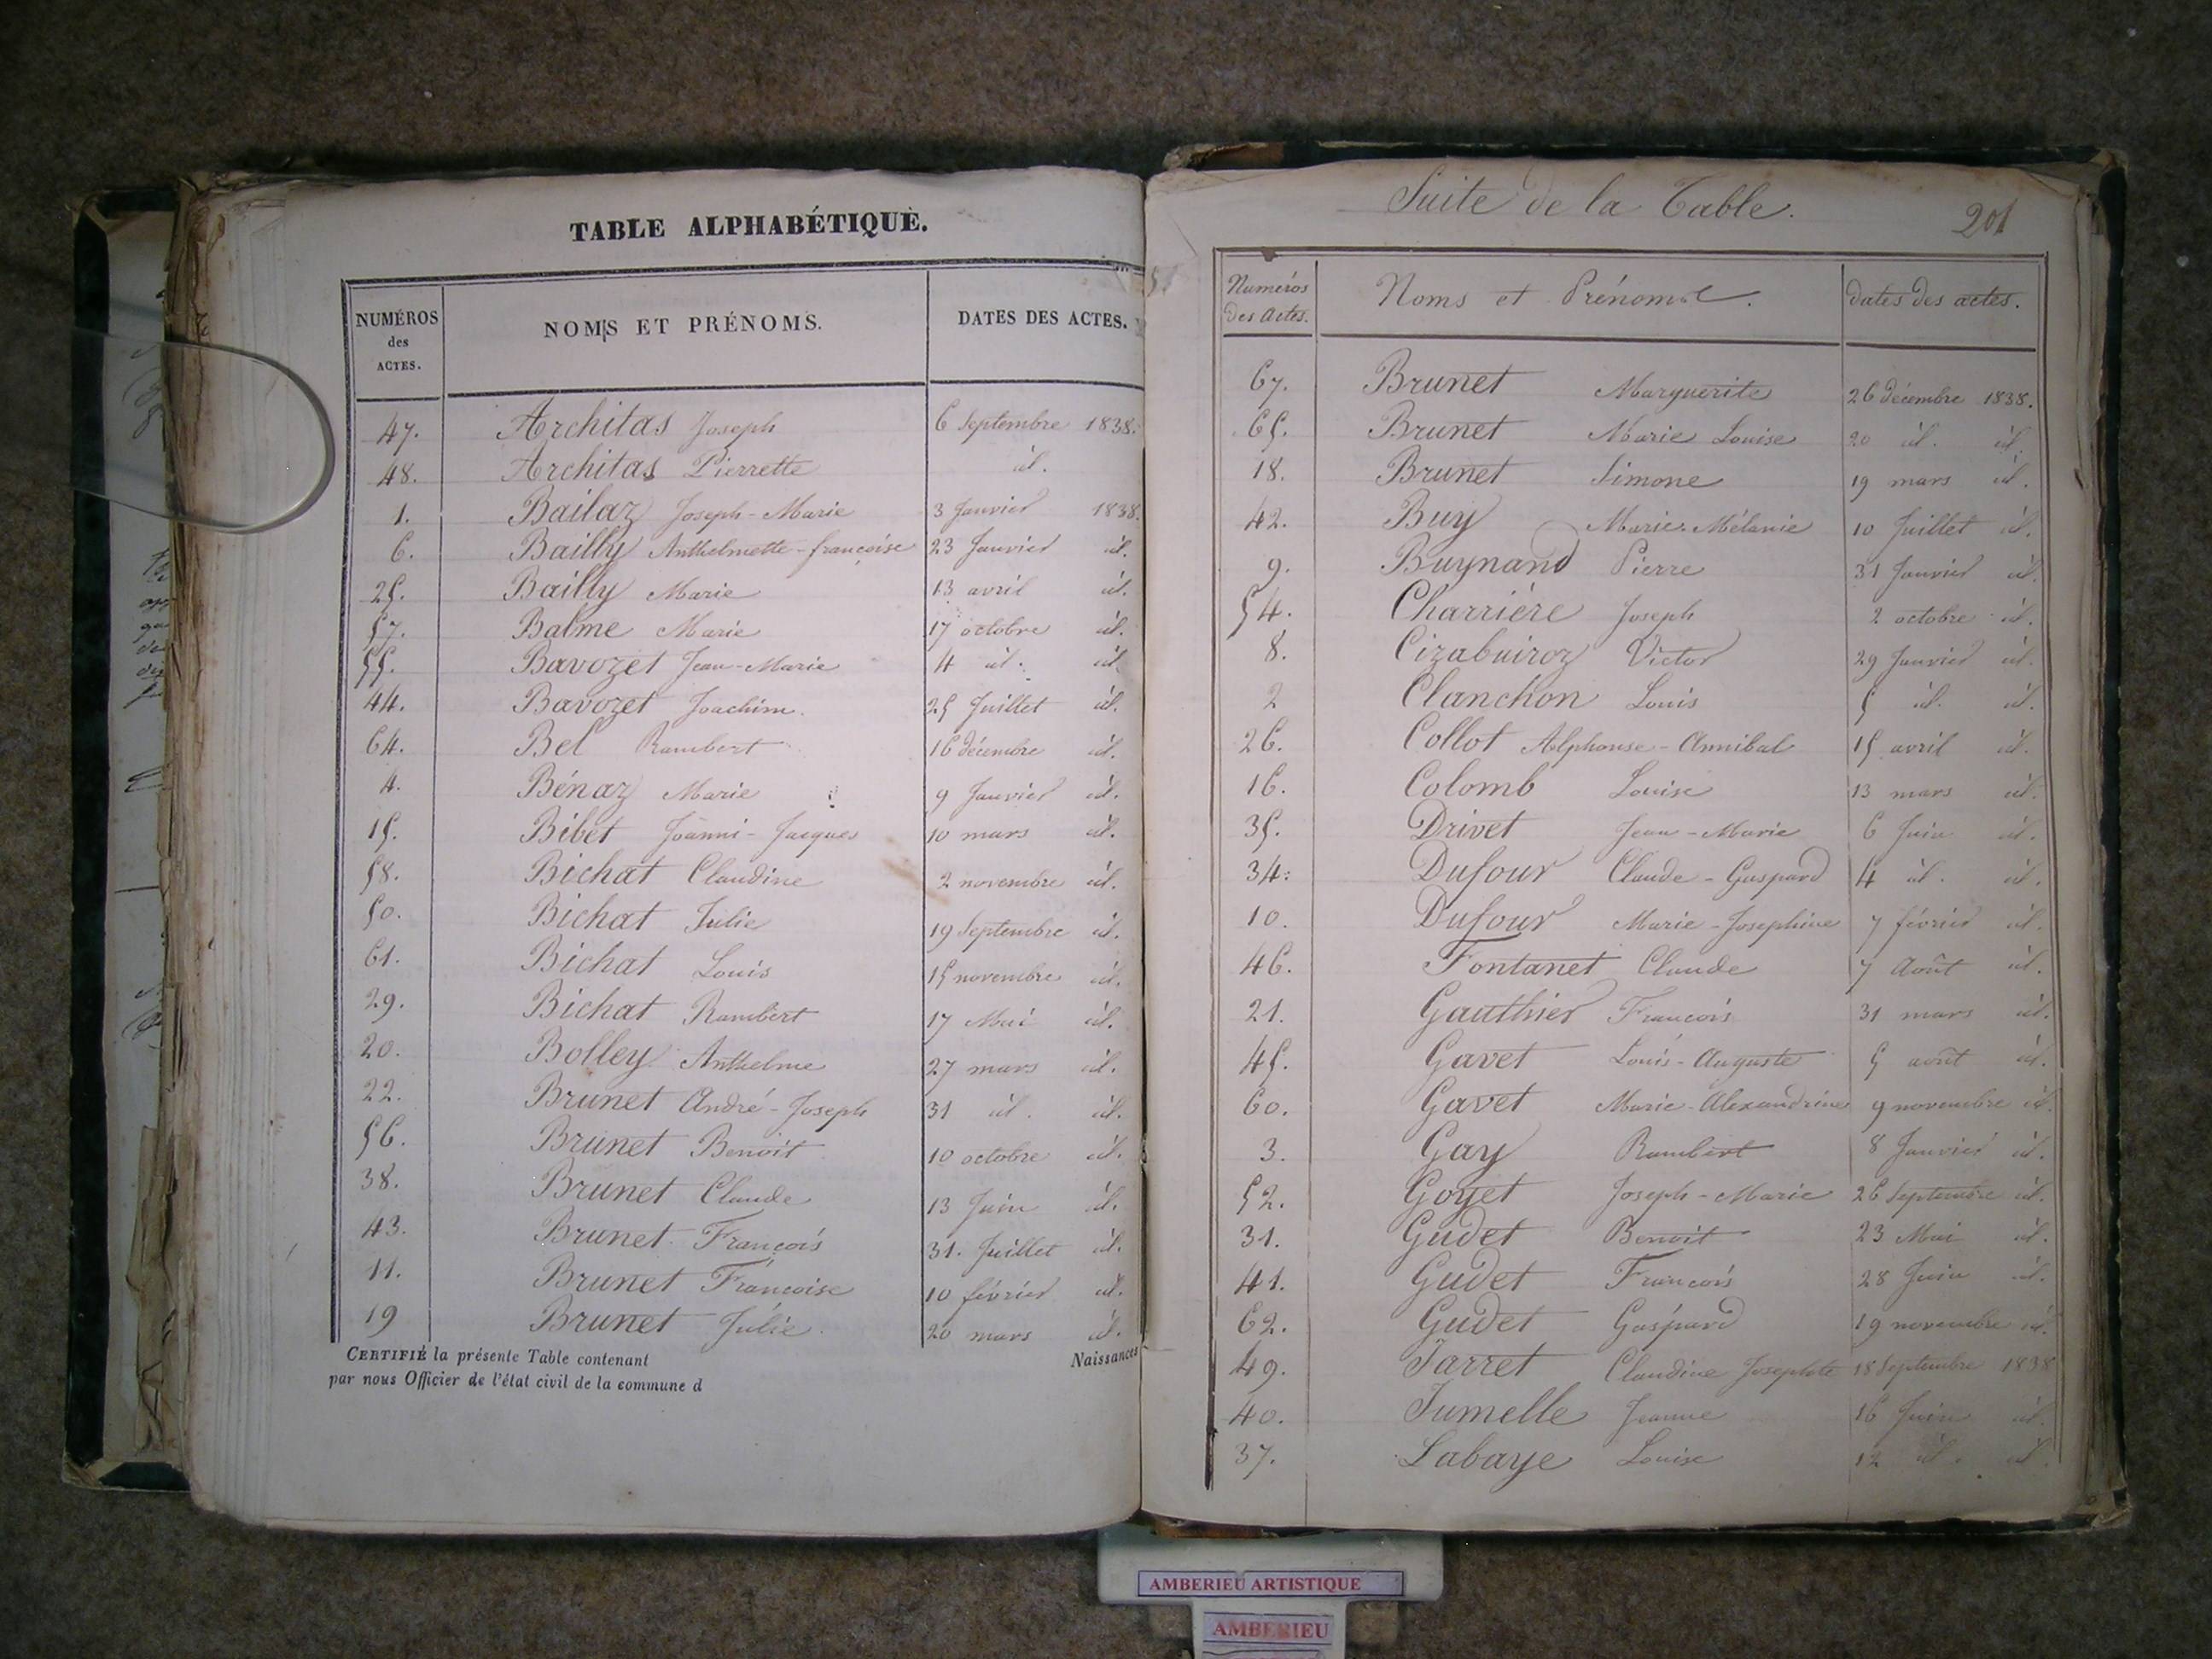 TABLE ALPHABÉTIQUE.
NUMÉROS des ACTES. NOMS ET PRÉNOMS. DATES DES ACTES.
47. Architas Joseph 6 Septembre 1838.
48. Architas Pierrette id.
1. Bailaz Joseph-Marie 3 Janvier 1838.
6. Bailly Anthelmette-françoise 23 Janvier id.
25. Bailly Marie 13 avril id.
57. Balme Marie 17 octobre id.
55. Bavozet Jean-Marie 4 id. id.
44. Bavozet Joachim. 25 Juillet id.
64. Bel Rambert 16 décembre id.
4. Bénaz Marie 9 Janvier id.
15. Bibet Joanni-Jacques 10 mars id.
58. Bichat Claudine 2 novembre id.
50. Bichat Julie 19 Septembre id.
61. Bichat Louis 15 novembre id.
29. Bichat Rambert 17 Mai id.
20. Bolley Anthelme 27 mars id.
22. Brunet André-Joseph 31 id. id.
56. Brunet Benoit 10 octobre id.
38. Brunet Claude 13 Juin id.
43. Brunet François 31. Juillet id.
11. Brunet Françoise 10 février id.
19 Brunet Julie 20 mars id.
CERTIFIÉ la présente Table contenant Naissances
par nous Officier de l'état civil de la commune d
Suite de la Table. 201
Numéros Des Actes. Noms et Prénoms. dates des actes.
67. Brunet Marguerite 26 décembre 1838.
65. Brunet Marie Louise 20 id. id.
18. Brunet Simone 19 mars id.
42. Buy Marie-Mélanie 10 Juillet id.
9. Buynand Pierre 31 Janvier id.
54. Charrière Joseph 2 octobre id.
8. Cizabuiroz Victor 29 Janvier id.
2 Clanchon Louis 5 id. id.
26. Collot Alphonse-Annibal 15 avril id.
16. Colomb Louise 13 mars id.
35. Drivet Jean-Marie 6 Juin id.
34. Dufour Claude-Gaspard 4 id. id.
10. Dufour Marie-Josephine 7 février id.
46. Fontanet Claude 7 Août id.
21. Gauthier François 31 mars id.
45. Gavet Louis-Auguste 5 août id.
60. Gavet Marie-Alexandrine 9 novembre id.
3. Gay Rambert 8 Janvier id.
52. Goyet Joseph-Marie 26 Septembre id.
31. Gudet Benoit 23 Mai id.
41. Gudet François 28 Juin id.
62. Gudet Gaspard 19 novembre id.
49. Jarret Claudine Josephte 18 Septembre 1838
40. Jumelle Jeanne 16 Juin id.
37. Labaye Louise 12 id. id.
AMBERIEU ARTISTIQUE
AMBERIEU